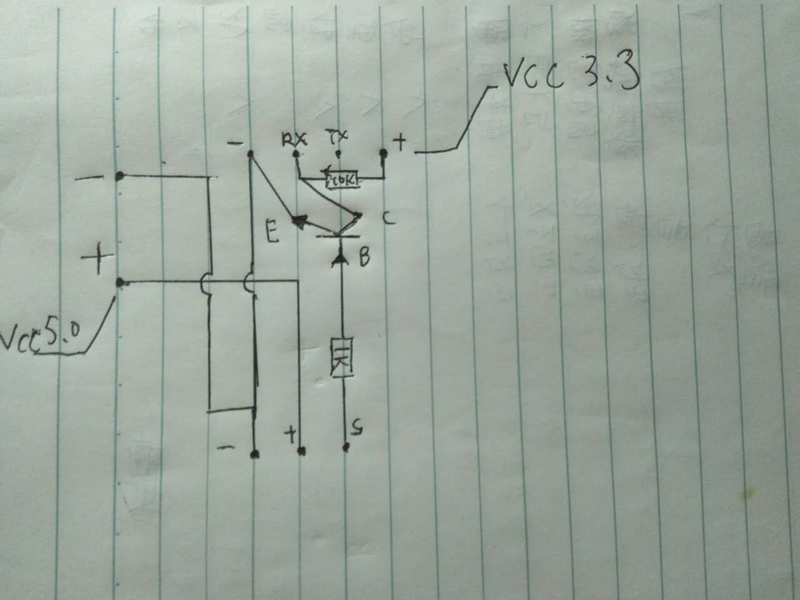 VCC 3.3
- RX TX +
-
10K
E C
+
B
VCC 5.0
1K
- + S